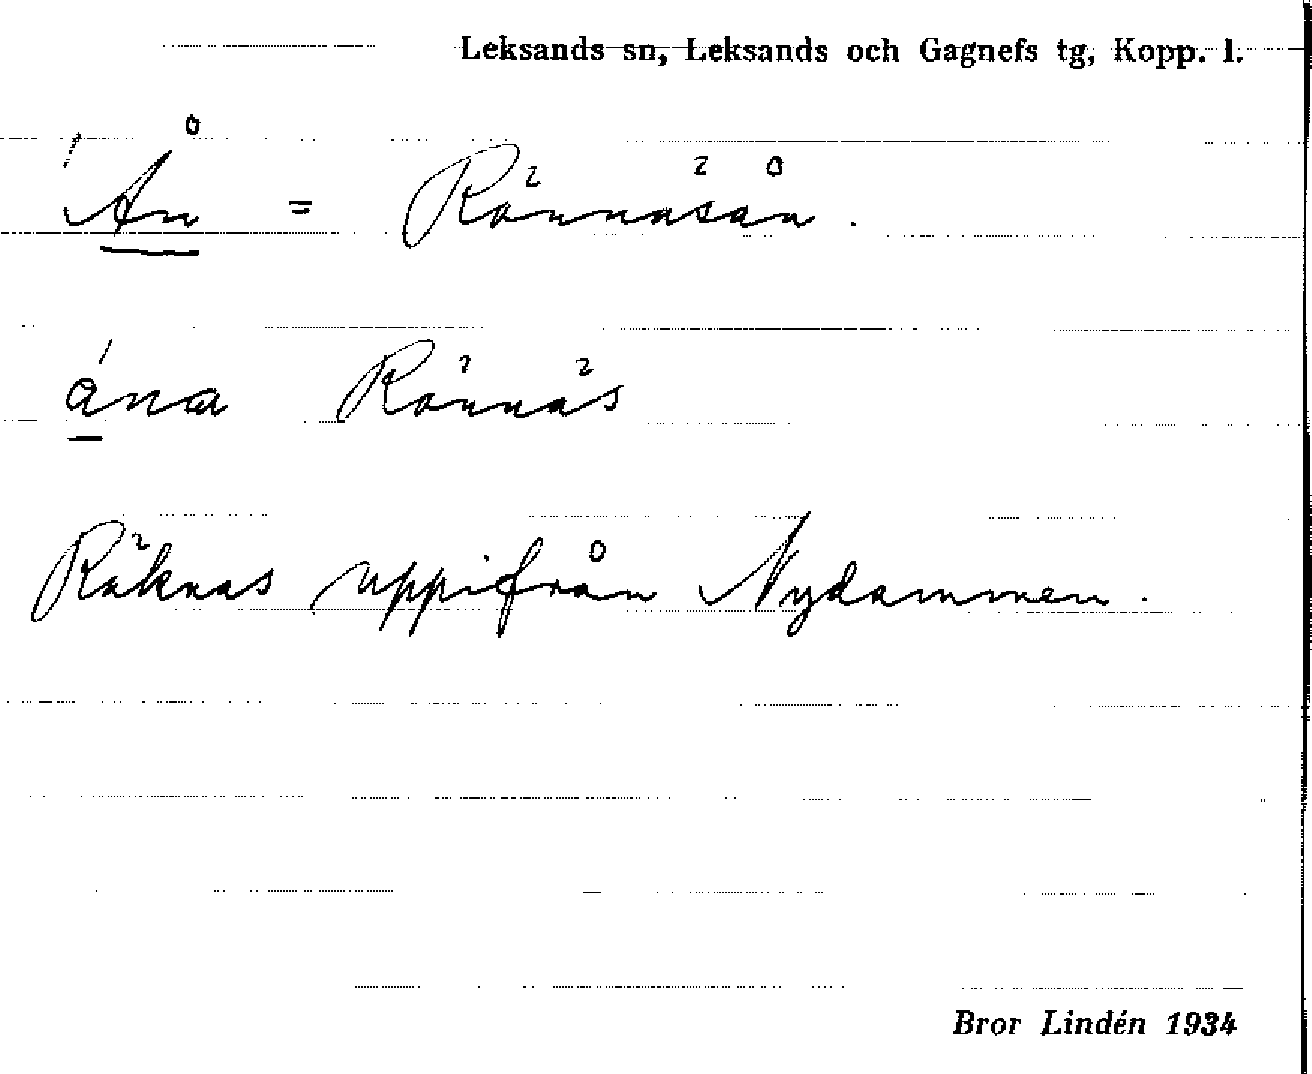 Leksands sn, Leksands och Gagnefs tg, Kopp. l.
Ån = Rönnäsån.
ána Rönnäs
Räknas uppifrån Nydammen.
Bror Lindén 1934